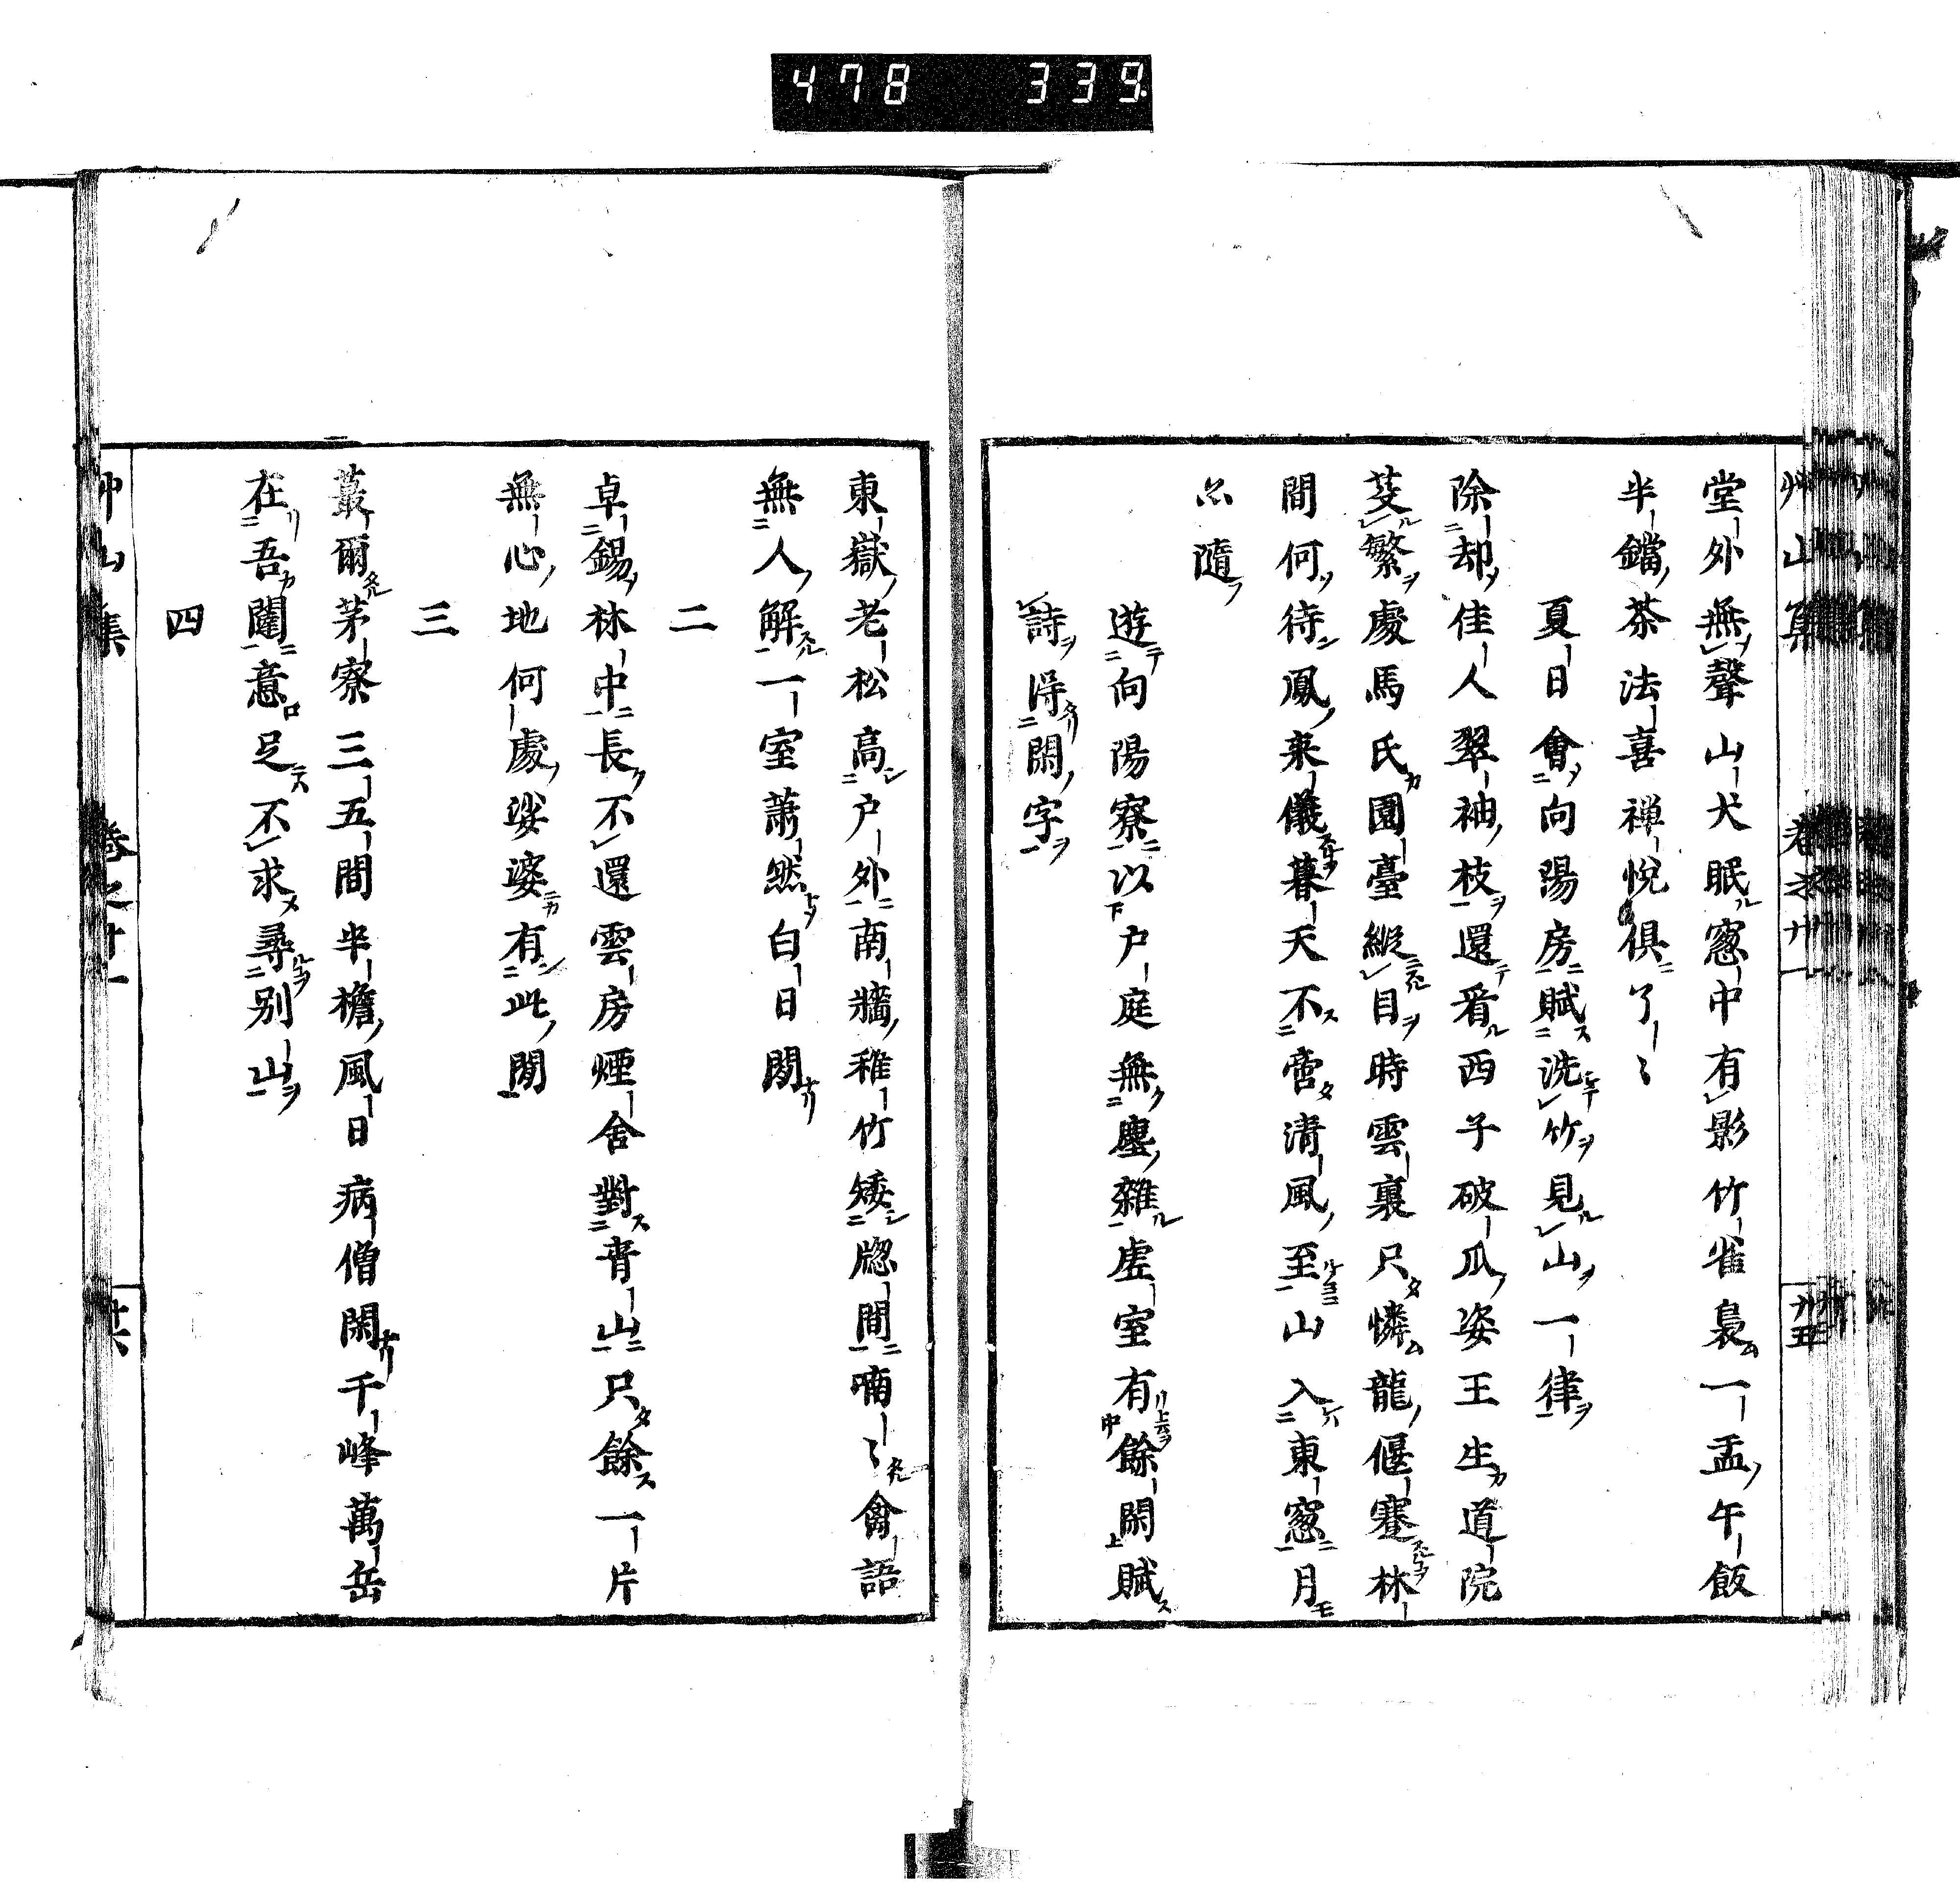 478 339
艸山集 卷之廿一 廿五
堂外無聲山犬眠窓中有影竹雀裊一盂午飯
半鐺茶法喜禅悅俱了〻
夏日會向陽房賦洗竹見山一律
除却佳人翠袖枝還看西子破瓜姿王生道院
芟繁處馬氏園臺縱目時雲裏只憐龍偃蹇林
間何待鳳來儀暮天不啻清風至山入東窓月
亦隨
遊向陽寮以戶庭無塵雜虛室有餘閑賦
詩得閑字
東嶽老松高戶外南牆稚竹矮牕間喃〻禽語
無人解一室蕭然白日閑
二
卓錫林中長不還雲房煙舍對青山只餘一片
無心地何處娑婆有此閒
三
叢爾茅寮三五間半檐風日病僧閑千峰萬岳
在吾闥意足不求尋別山
四
艸山集 卷之廿一 廿六